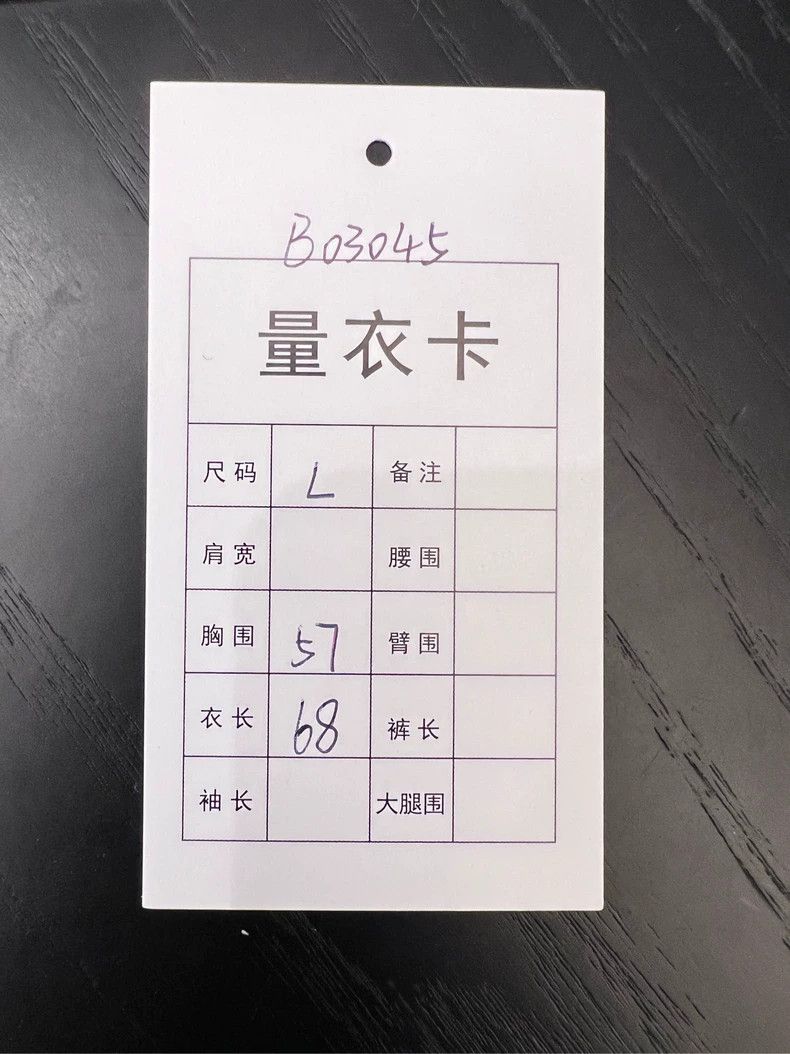 B03045
量衣卡
尺码 L 备注
肩宽 腰围
胸围 57 臂围
衣长 68 裤长
袖长 大腿围